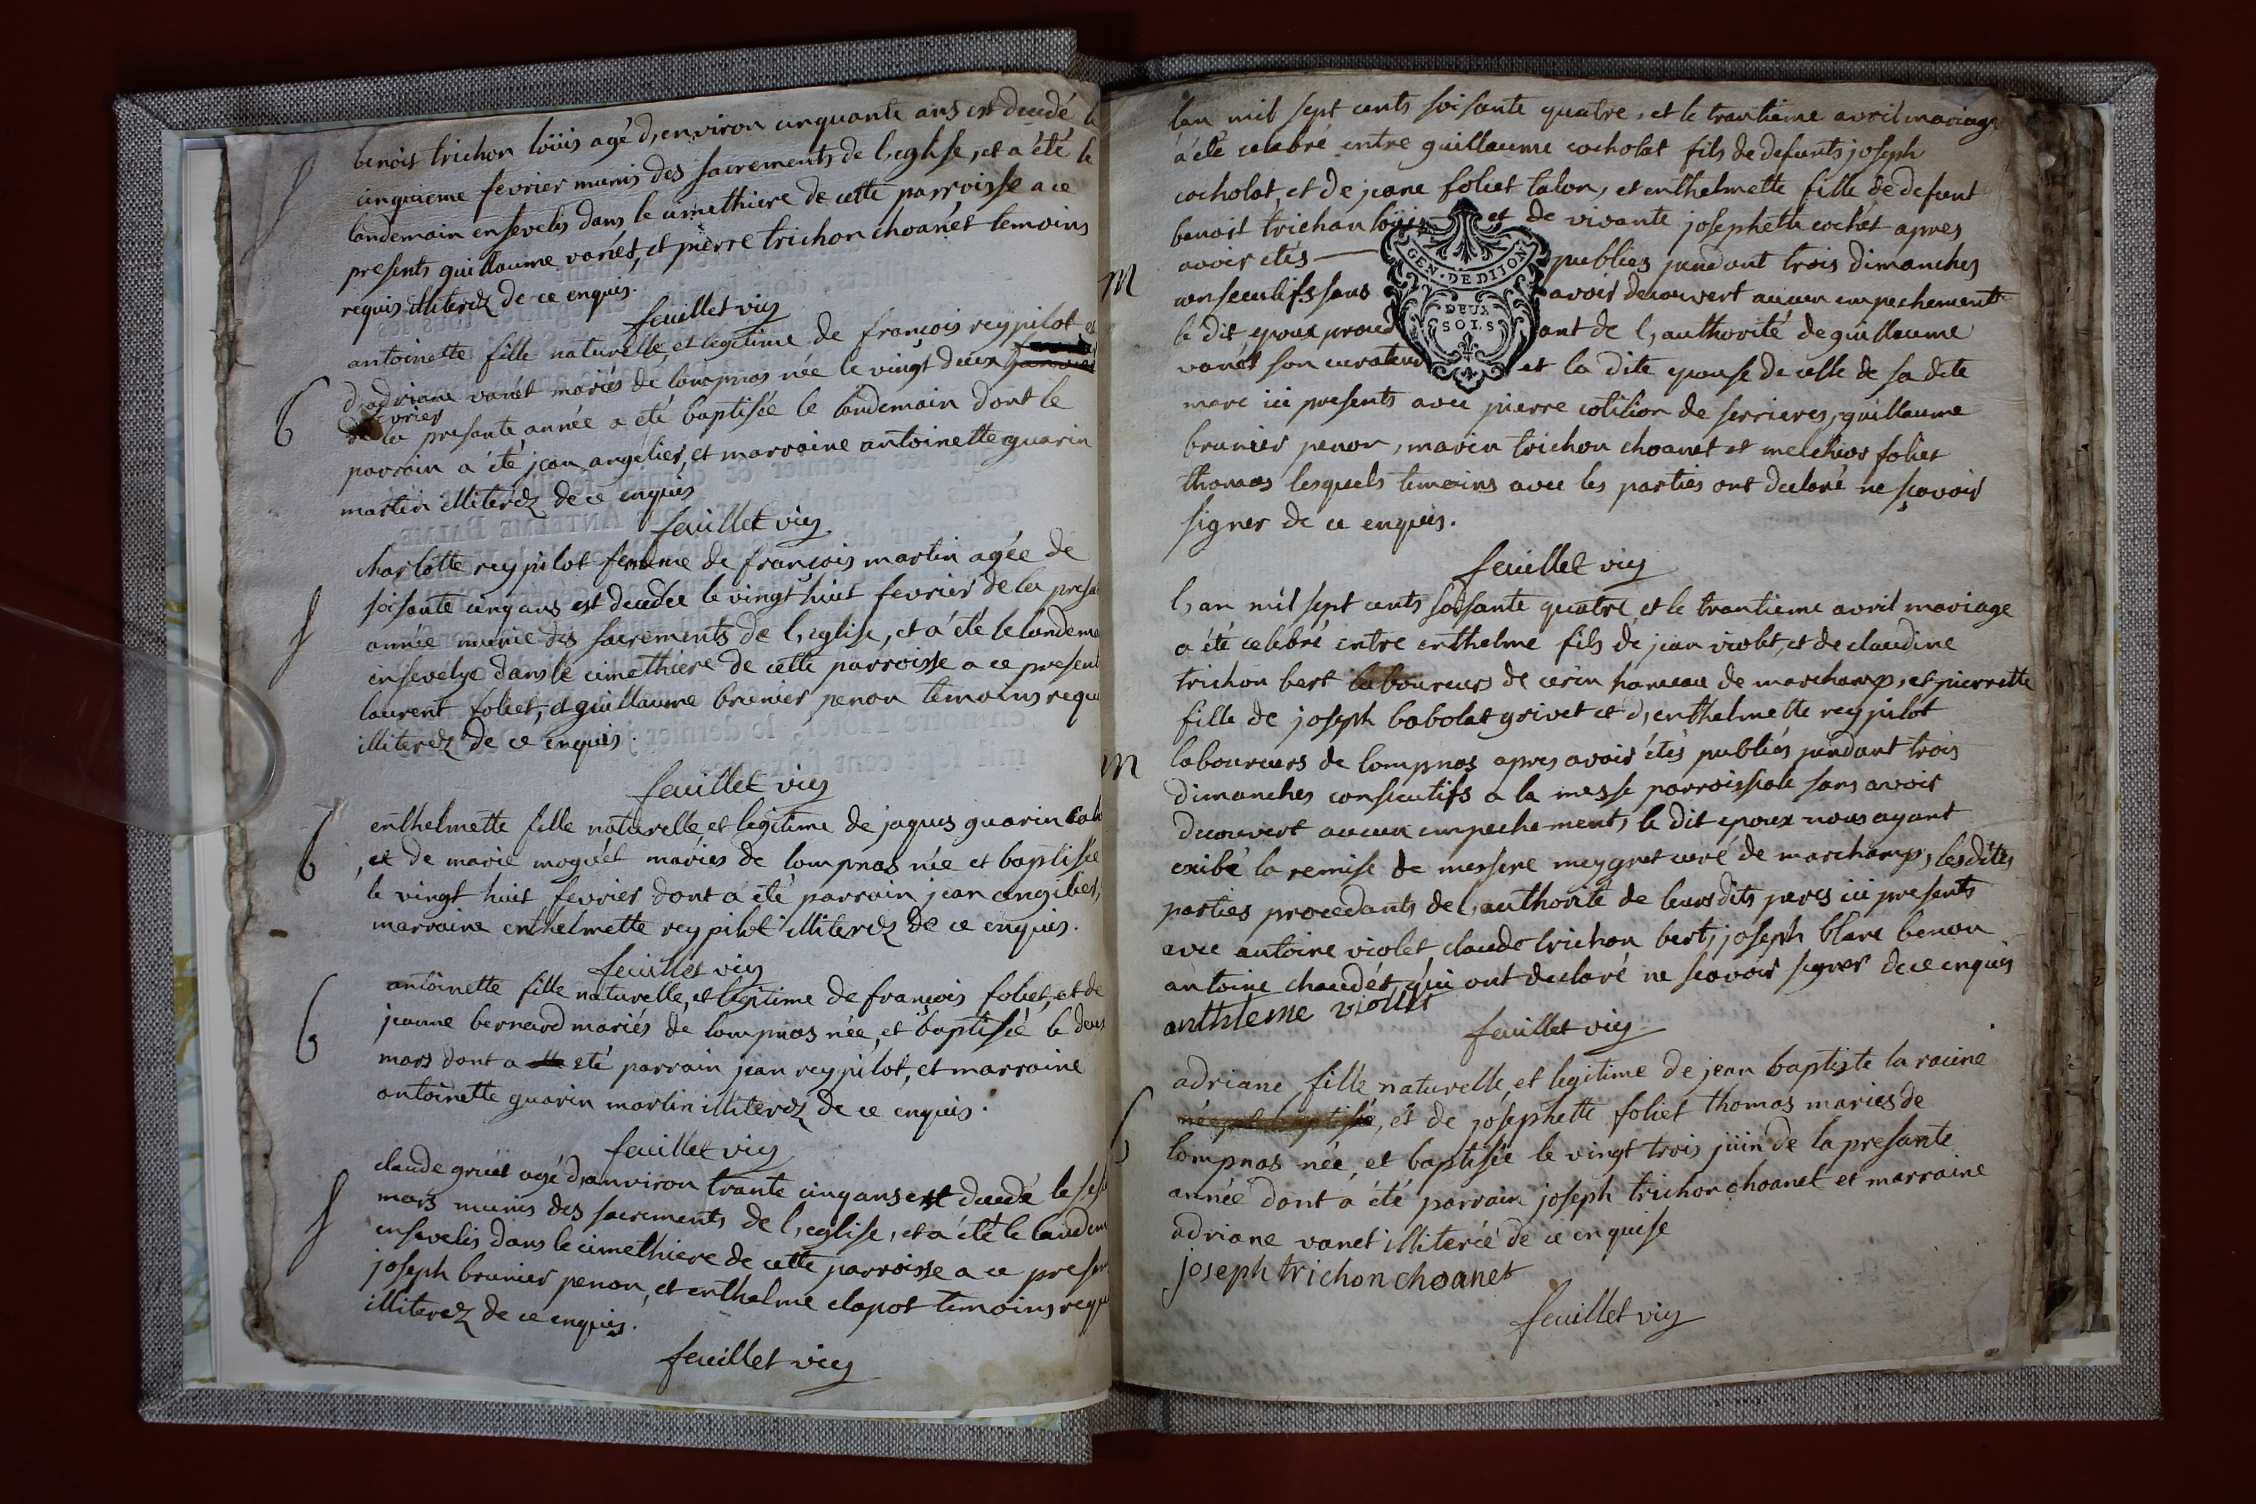 S
benois trichon loüis agé d,environ cinquante ans est decedé le
cinquieme fevrier munis des sacrements de l,eglise, et a été le
landemain ensevelis dans le cimethiere de cette parroisse a ce
presents guillaume vanet, et pierre trichon choanet temoins
requis illiterez de ce enquis.
feuillet vic
B
antoinette fille naturelle, et legitime de françois rey pilot et
d,adriane vanet mariés de lompnas née le vingt deux
vrier
de la presante année a été baptisée le landemain dont le
parrain a été jean angelier, et marraine antoinette guarin
martin illiterez de ce enquis
feuillet vic
S
charlotte rey pilot femme de françois martin agée de
soisante cinq ans est decedée le vingt huit fevrier de la presa
année munie des sacrements de l,eglise, et a été le landema
ensevelye dans le cimethiere de cette parroisse a ce present
laurent foliet, et guillaume brunier penon temoins requi
illiterez de ce enquis.
feuillet vic
B
enthelmette fille naturelle, et legitime de jaques guarin
, et de marie moguét mariés de lompnas née et baptisée
le vingt huit fevrier dont a été parrain jean angilier,
marraine enthelmette rey pilot illiterez de ce enquis.
feuillet vic
B
antoinette fille naturelle, et legitime de françois foliet, et de
jeanne bernard mariés de lompnas née, et baptisée le deux
mars dont a été parrain jean rey pilot, et marraine
antoinette guarin martin illiterez de ce enquis.
feuillet vic
S
claude gruet agé d,anviron trante cinq ans est decedé le
mars munis des sacrements de l,eglise, et a été le landem
ensevelis dans le cimethiere de cette parroisse a ce presen
joseph brunier penon, et enthelme clapot temoins requi
illiterez de ce enquis.
feuillet vic
lan mil sept cents soisante quatre, et le trantieme avril mariage
a été celebré entre guillaume cocholat fils de defunts joseph
cocholat, et de jeane foliet talon, et enthelmette fille de defunt
benoit trichon loüis et de vivante josephette cochet apres
M
avoir etés — publiez pendant trois dimanches
consecutifs sans avoir decouvert aucun empechement
le dit epoux proced ant de l,authorité de guillaume
vanet son curateur et la dite epouse de celle de sa dite
mere ici presents avec pierre cotition de serrieres, guillaume
brunier penon, marin trichon choanet et melchior foliet
thomas lesquels temoins avec les parties ont declaré ne sçavoir
signer de ce enquis.
GEN. DE DIJON
DEUX
SOLS
feuillet vic
l,an mil sept cents soisante quatre et le trantieme avril mariage
a été celebré entre enthelme fils de jean violet, et de claudine
trichon bert laboureurs de cerin hameau de marchamp, et pierrette
fille de joseph babolat grivet et d,enthelmette rey pilot
M
laboureurs de lompnas apres avoir étés publiés pendant trois
dimanches consecutifs a la messe parroissiale sans avoir
decouvert aucun empechement, le dit epoux nous ayant
exibé la remise de messire meygret curé de marchamp, les dites
parties procedants de l,authorité de leurs dits peres ici presents
avec antoine violet, claude trichon bert, joseph blanc benon
antoine chaudét, qui ont declaré ne scavoir signer de ce enquis
anthleme viollet
feuillet vic
B
adriane fille naturelle, et legitime de jean baptiste la racine
, et de josephette foliet thomas mariés de
lompnas née, et baptisée le vingt trois juin de la presante
année dont a été parrain joseph trichon choanet et marraine
adriane vanet illiterée de ce enquise
joseph trichon choanet
feuillet vic